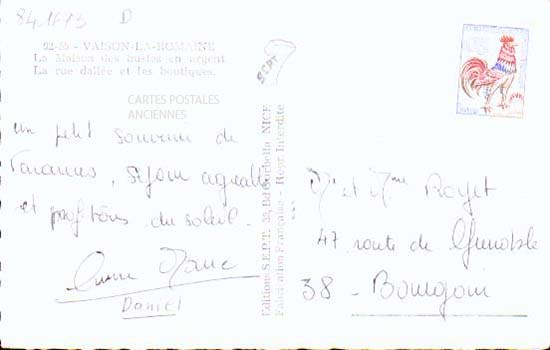 84.1613 D
92-59 - VAISON-LA-ROMAINE
La Maison des bustes en argent
La rue dallée et les boutiques.
SEPT
CARTES POSTALES
ANCIENNES
un petit souvenir de
vacances, séjour agréable
et profitons du soleil.
Anne Marie
Daniel
Editions S.E.P.T. 33, Bd Gorbella NICE
Fabrication Française - Repr. Interdite
Mr et Mme Royet
47 route de Grenoble
38 - Bourgoin